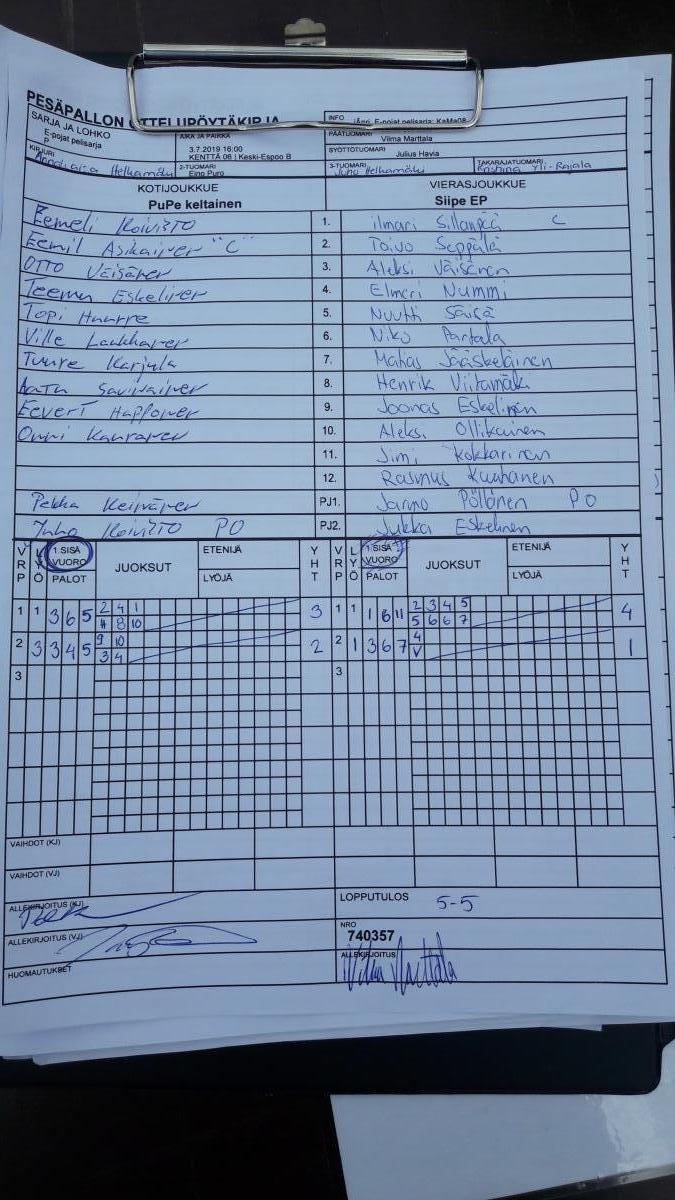 PESÄPALLON OTTELUPÖYTÄKIRJA
INFO
SARJA JA LOHKO
E-pojat pelisarja
P
AIKA JA PAIKKA
3.7.2019 16:00
KENTTÄ 06 | Keski-Espoo B
PÄÄTUOMARI
Vilma Marttala
SYÖTTÖTUOMARI
Julius Havia
KIRJURI
Helkamäki
2-TUOMARI
Eino Puro
3-TUOMARI
Juho Helkamäki
TAKARAJATUOMARI
Yli-Rajala
KOTIJOUKKUE
PuPe keltainen
VIERASJOUKKUE
Siipe EP
Eemeli Koivisto 1. ilmari Sillanpää C
Eemil Asikainen "C" 2. Toivo Seppälä
Otto Väisänen 3. Aleksi Väisänen
Teemu Eskelinen 4. Elmeri Nummi
Topi Huurre 5. Nuutti Säisä
Ville Laukkanen 6. Niko Partala
Tuure Karjula 7. Jääskeläinen
Aatu Savinainen 8. Henrik Viitamäki
Eevert Happonen 9. Joonas Eskelinen
Onni Kauranen 10. Aleksi Ollikainen
11. Jimi Kokkarinen
12. Rasmus Kauhanen
Pekka PJ1. Jarmo Pöllänen PO
Juho Koivisto PO PJ2. Jukka Eskelinen
VRP LYÖ 1.SISÄ VUORO PALOT JUOKSUT ETENIJÄ LYÖJÄ YHT VRP LYÖ 1.SISÄ VUORO PALOT JUOKSUT ETENIJÄ LYÖJÄ YHT
1 1 3 6 5 2 4 1 3 1 1 1 8 11 2 3 4 5 4
4 8 10 5 6 6 7
2 3 3 4 5 9 10 2 2 1 3 6 7 4 1
3 4 V
3 3
VAIHDOT (KJ)
VAIHDOT (VJ)
ALLEKIRJOITUS (KJ)
LOPPUTULOS 5-5
ALLEKIRJOITUS (VJ)
NRO
740357
HUOMAUTUKSET
ALLEKIRJOITUS
Vilma Marttala